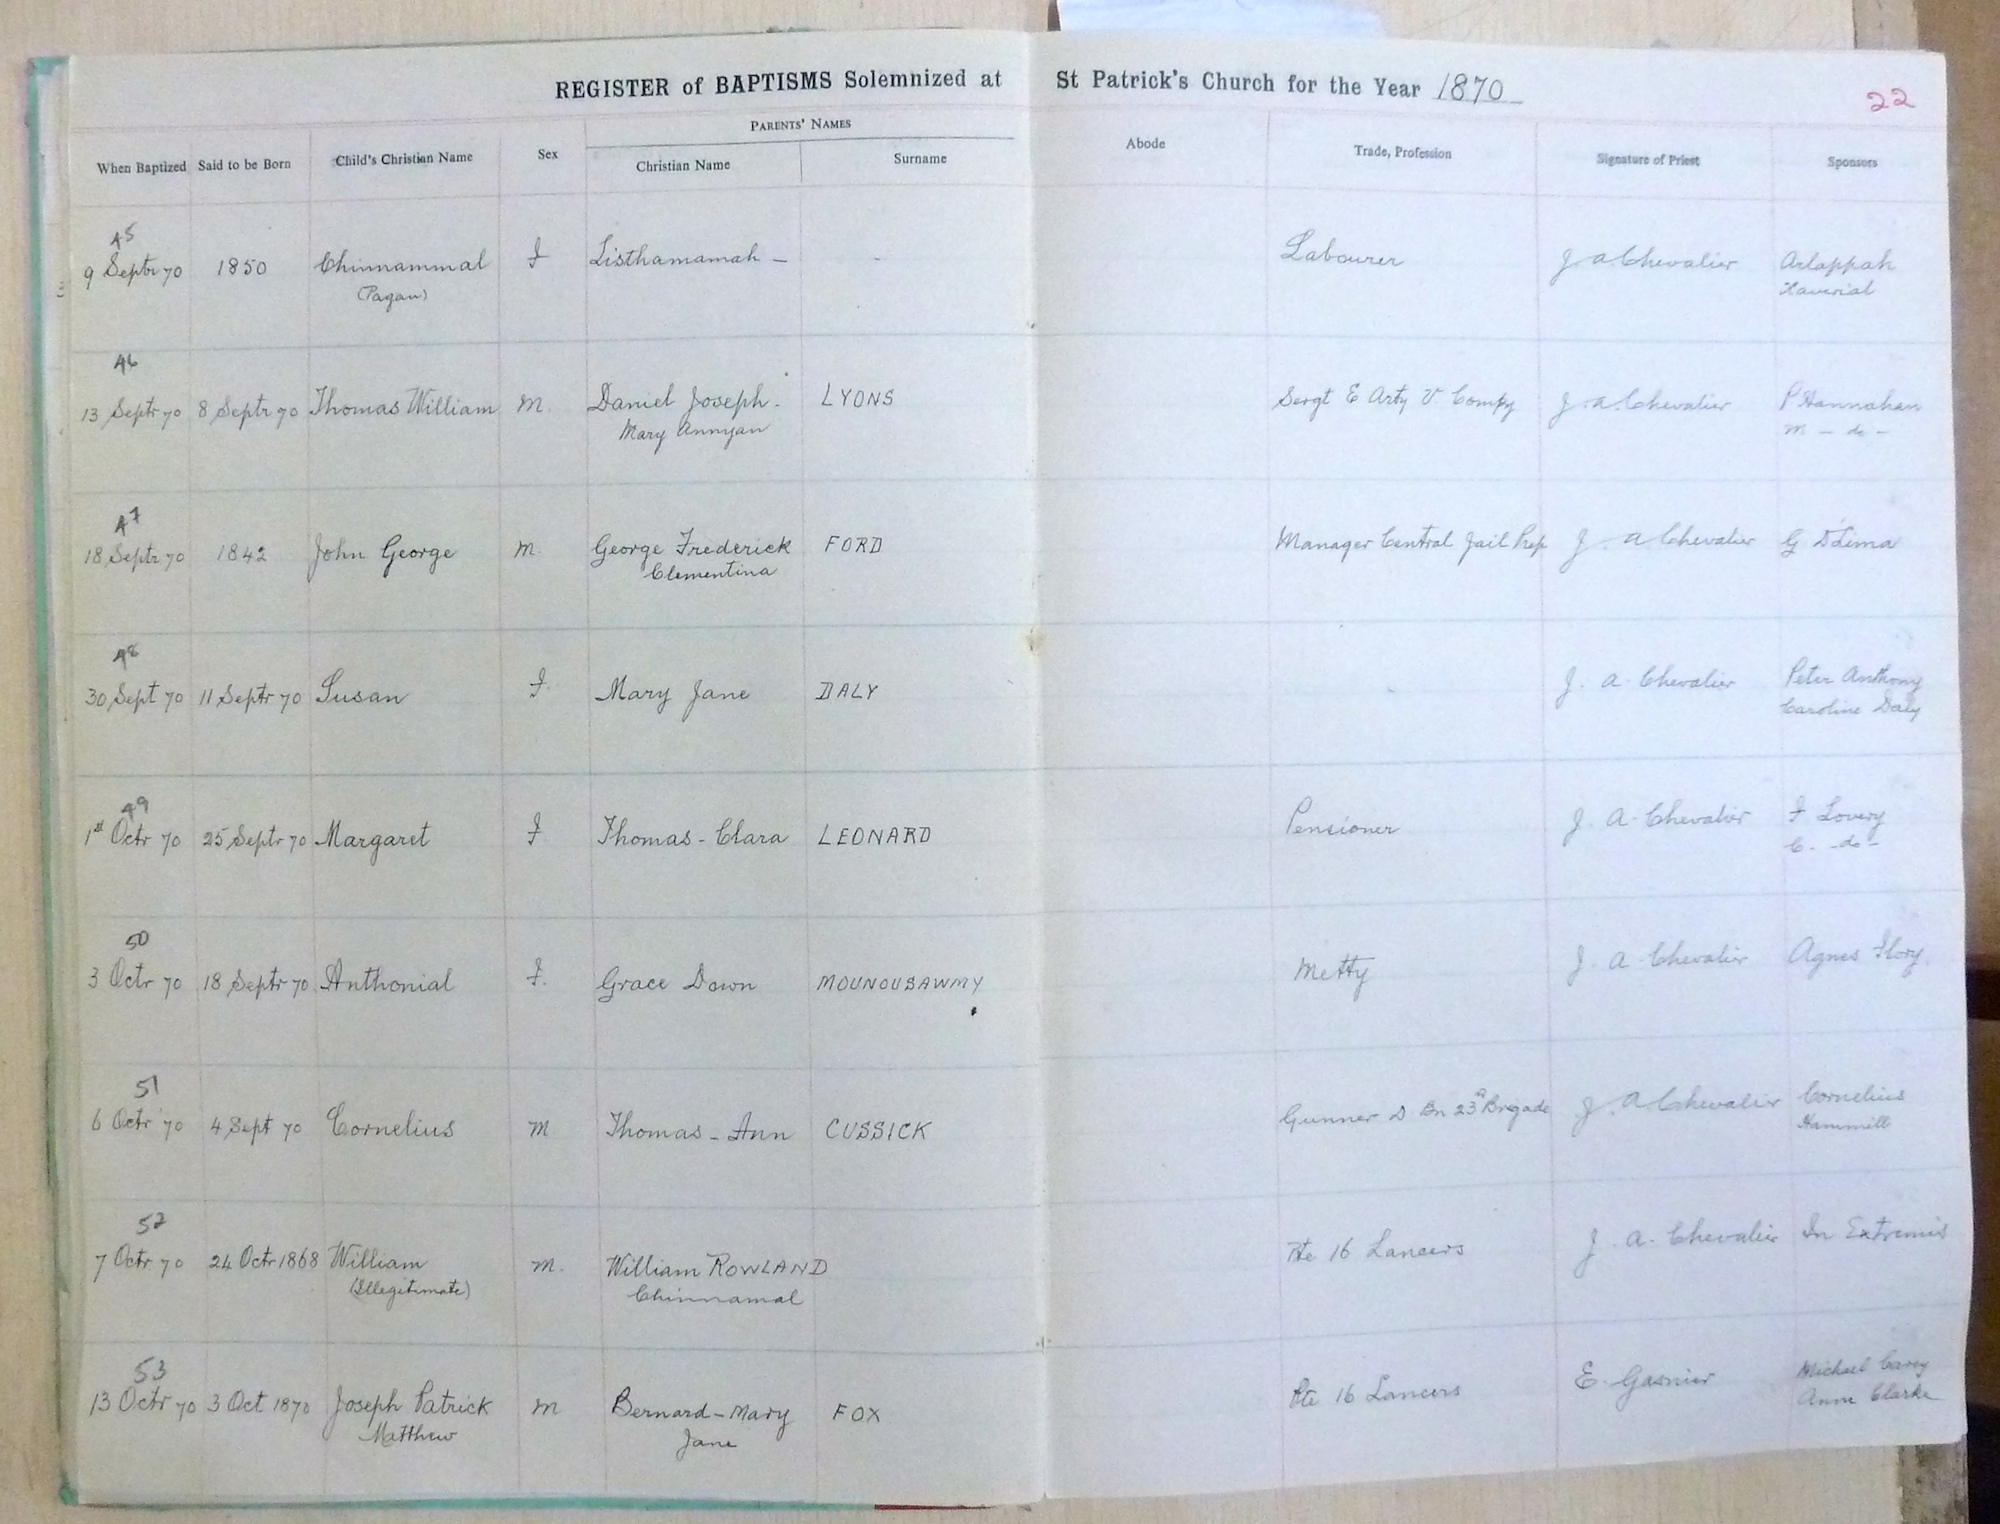 REGISTER of BAPTISMS Solemnized at St Patrick's Church for the Year 1870
22
PARENTS' NAMES
When Baptized Said to be Born Child's Christian Name Sex Christian Name Surname Abode Trade, Profession Signature of Priest Sponsors
45
9 Septr 70 1850 Chinnammal F Listhamamah - - Labourer J. A Chevalier Arlappah
(Pagan) Xaverial
46
13 Septr 70 8 Septr 70 Thomas William M. Daniel Joseph - LYONS Sergt E Arty V Compy J. A. Chevalier P Hannahan
Mary Annyan M - do -
47
18 Septr 70 1842 John George M. George Frederick FORD Manager Central Jail J. A Chevalier G D'Lima
Clementina
48
30 Sept 70 11 Septr 70 Susan F. Mary Jane DALY J. A. Chevalier Peter Anthony
Caroline Daly
49
1st Octr 70 25 Septr 70 Margaret F Thomas - Clara LEONARD Pensioner J. A. Chevalier F Lovery
C. - do -
50
3 Octr 70 18 Septr 70 Anthonial F. Grace Down MOUNOUSAWMY Metty J. A. Chevalier Agnes Flory
51
6 Octr 70 4 Sept 70 Cornelius M Thomas - Ann CUSSICK Gunner D Bn 23rd Brigade J. A Chevalier Cornelius
Hammill
52
7 Octr 70 24 Octr 1868 William M. William ROWLAND Pte 16 Lancers J. A. Chevalier In Extremis
(Illegitimate) Chinnamal
53
13 Octr 70 3 Oct 1870 Joseph Patrick M Bernard - Mary FOX Pte 16 Lancers E. Gasnier Michael Carey
Matthew Jane Anne Clarke